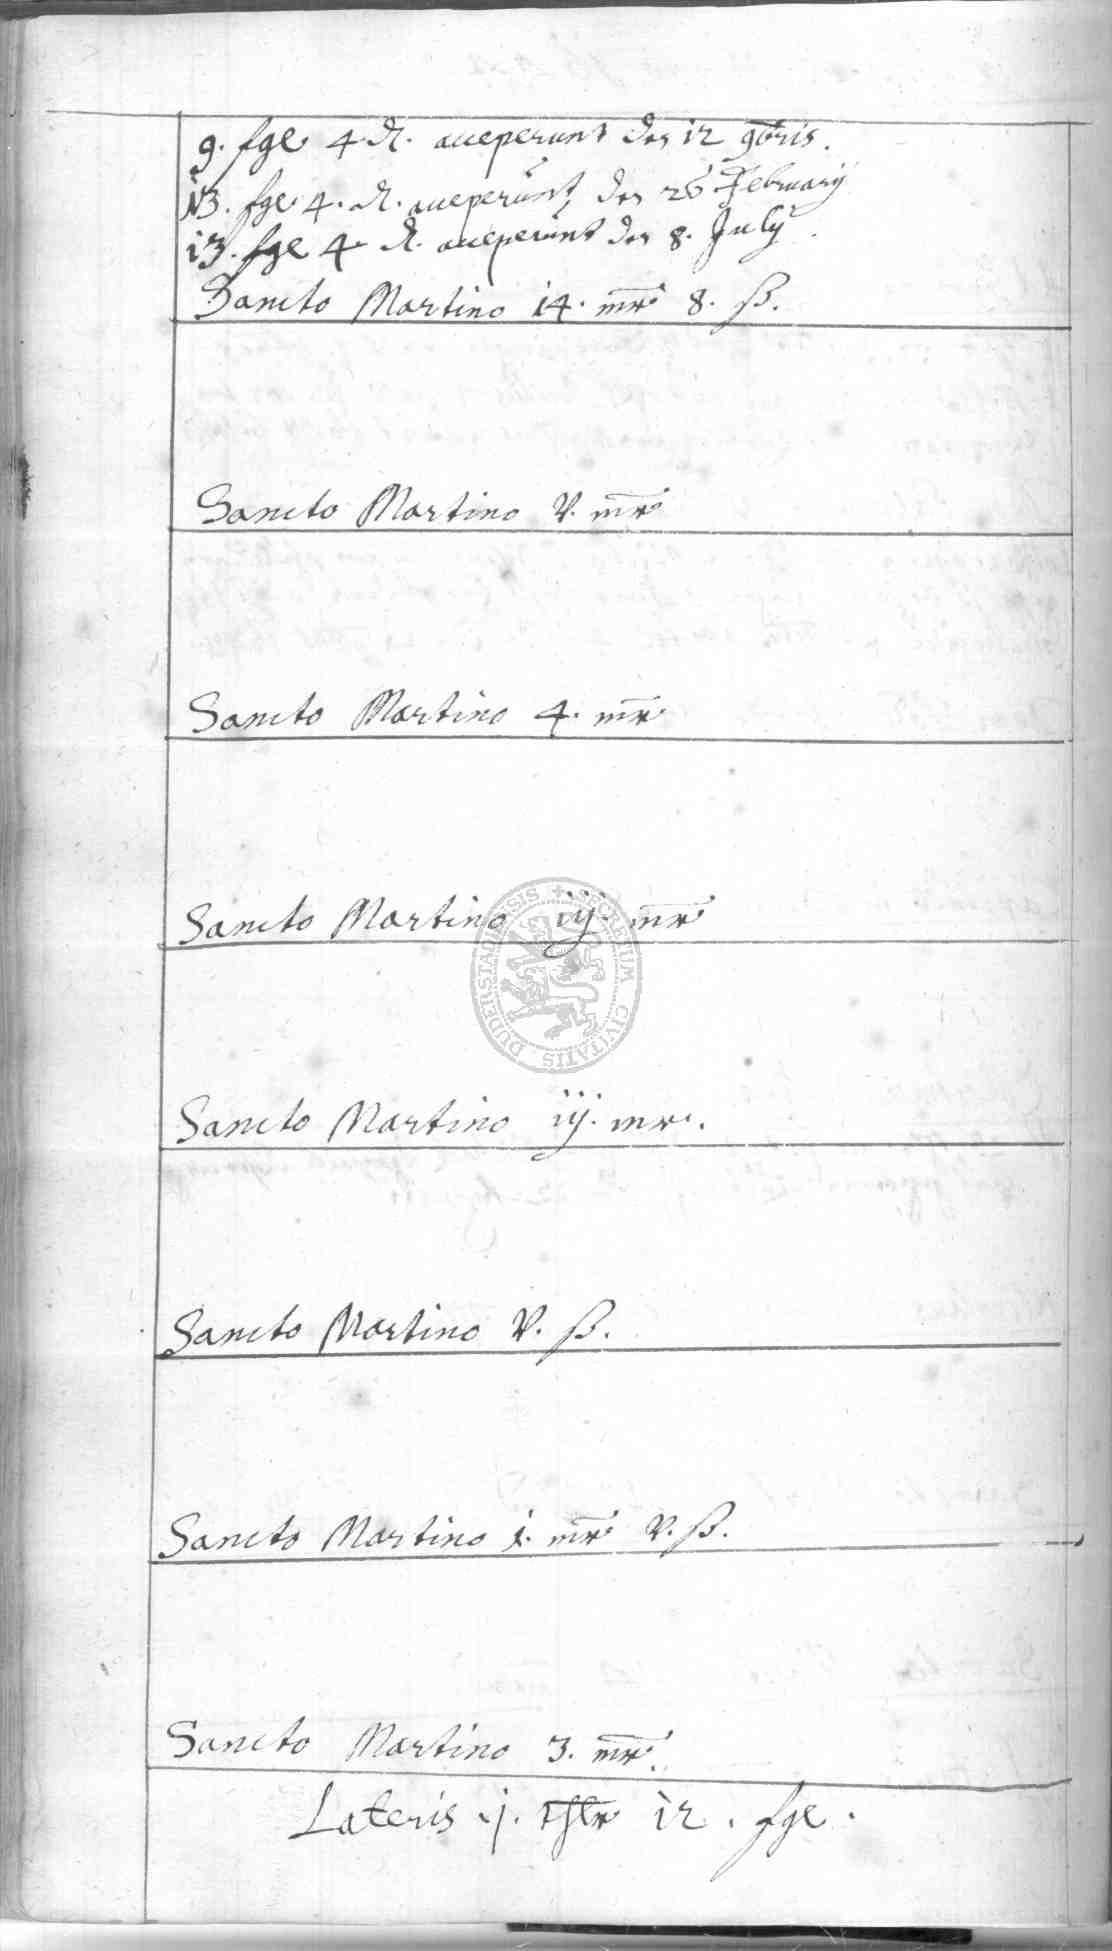 9. fgl 4 d. acceperunt den 12 9bris.
13. fgl 4. d. acceperunt den 26 February
13. fgl 4 d. acceperunt den 8. July
Sancto Martino 14. mr 8. ß.
Sancto Martino v. mr
Sancto Martino 4. mr
Sancto Martino iij. mr
SECRETUM CIVITATIS DUDERSTADIENSIS
Sancto Martino iij. mr.
Sancto Martino v. ß.
Sancto Martino 1. mr v. ß.
Sancto Martino 3. mr.
Lateris j. thlr 12. fgl.